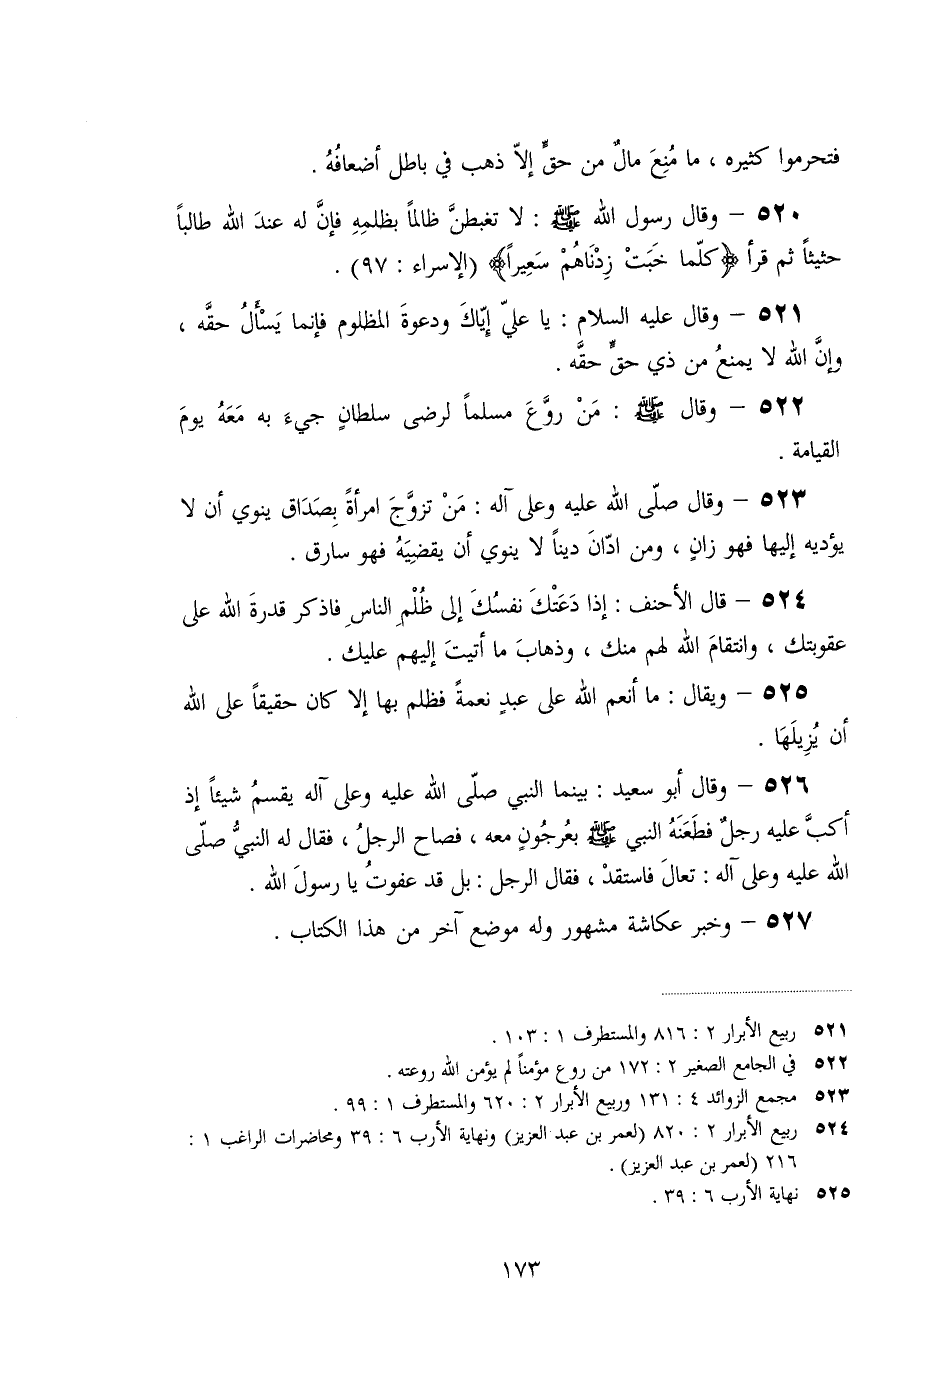 فتحرموا كثيره ، ما مُنِعَ مالٌ من حقٍّ إلاّ ذهب في باطل أضعافُهُ .
٥٢٠ – وقال رسول الله ﷺ : لا تغبطنَّ ظالماً بظلمِهِ فإنَّ له عندَ الله طالباً
حثيثاً ثم قرأ ﴿كلّما خَبَتْ زِدْنَاهُمْ سَعِيراً﴾ (الإسراء : ٩٧) .
٥٢١ – وقال عليه السلام : يا عليّ إيّاكَ ودعوةَ المظلوم فإنما يَسْأَلُ حقَّه ،
وإنَّ الله لا يمنعُ من ذي حقٍّ حقَّه .
٥٢٢ – وقال ﷺ : مَنْ روَّعَ مسلماً لرضى سلطانٍ جيءَ به مَعَهُ يومَ
القيامة .
٥٢٣ – وقال صلّى الله عليه وعلى آله : مَنْ تزوَّجَ امرأةً بِصَدَاق ينوي أن لا
يؤديه إليها فهو زانٍ ، ومن ادّانَ ديناً لا ينوي أن يقضِيَهُ فهو سارق .
٥٢٤ – قال الأحنف : إذا دَعَتْكَ نفسُكَ إلى ظُلْمِ الناسِ فاذكر قدرةَ الله على
عقوبتك ، وانتقامَ الله لهم منك ، وذهابَ ما أتيتَ إليهم عليك .
٥٢٥ – ويقال : ما أنعم الله على عبدٍ نعمةً فظلم بها إلا كان حقيقاً على الله
أن يُزِيلَهَا .
٥٢٦ – وقال أبو سعيد : بينما النبي صلّى الله عليه وعلى آله يقسمُ شيئاً إذ
أكبَّ عليه رجلٌ فطَعَنَهُ النبي ﷺ بعُرجُونٍ معه ، فصاح الرجلُ ، فقال له النبيُّ صلّى
الله عليه وعلى آله : تعالَ فاستقدْ ، فقال الرجل : بل قد عفوتُ يا رسولَ الله .
٥٢٧ – وخبر عكاشة مشهور وله موضع آخر من هذا الكتاب .
٥٢١ ربيع الأبرار ٢ : ٨١٦ والمستطرف ١ : ١٠٣ .
٥٢٢ في الجامع الصغير ٢ : ١٧٢ من روع مؤمناً لم يؤمن الله روعته .
٥٢٣ مجمع الزوائد ٤ : ١٣١ وربيع الأبرار ٢ : ٦٢٠ والمستطرف ١ : ٩٩ .
٥٢٤ ربيع الأبرار ٢ : ٨٢٠ (لعمر بن عبد العزيز) ونهاية الأرب ٦ : ٣٩ ومحاضرات الراغب ١ :
٢١٦ (لعمر بن عبد العزيز) .
٥٢٥ نهاية الأرب ٦ : ٣٩ .
١٧٣